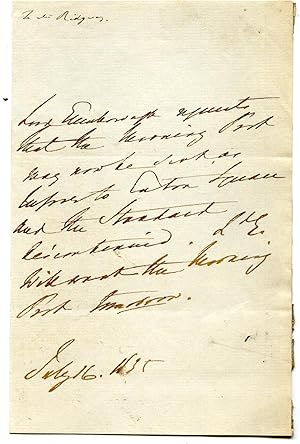 To Mr Ridgway
Lord Ellenborough requests
that the Morning Post
may now be sent as
before to Eaton Square
and the Standard
discontinued. Ld E.
will want the Morning
Post tomorrow.
July 16. 1835